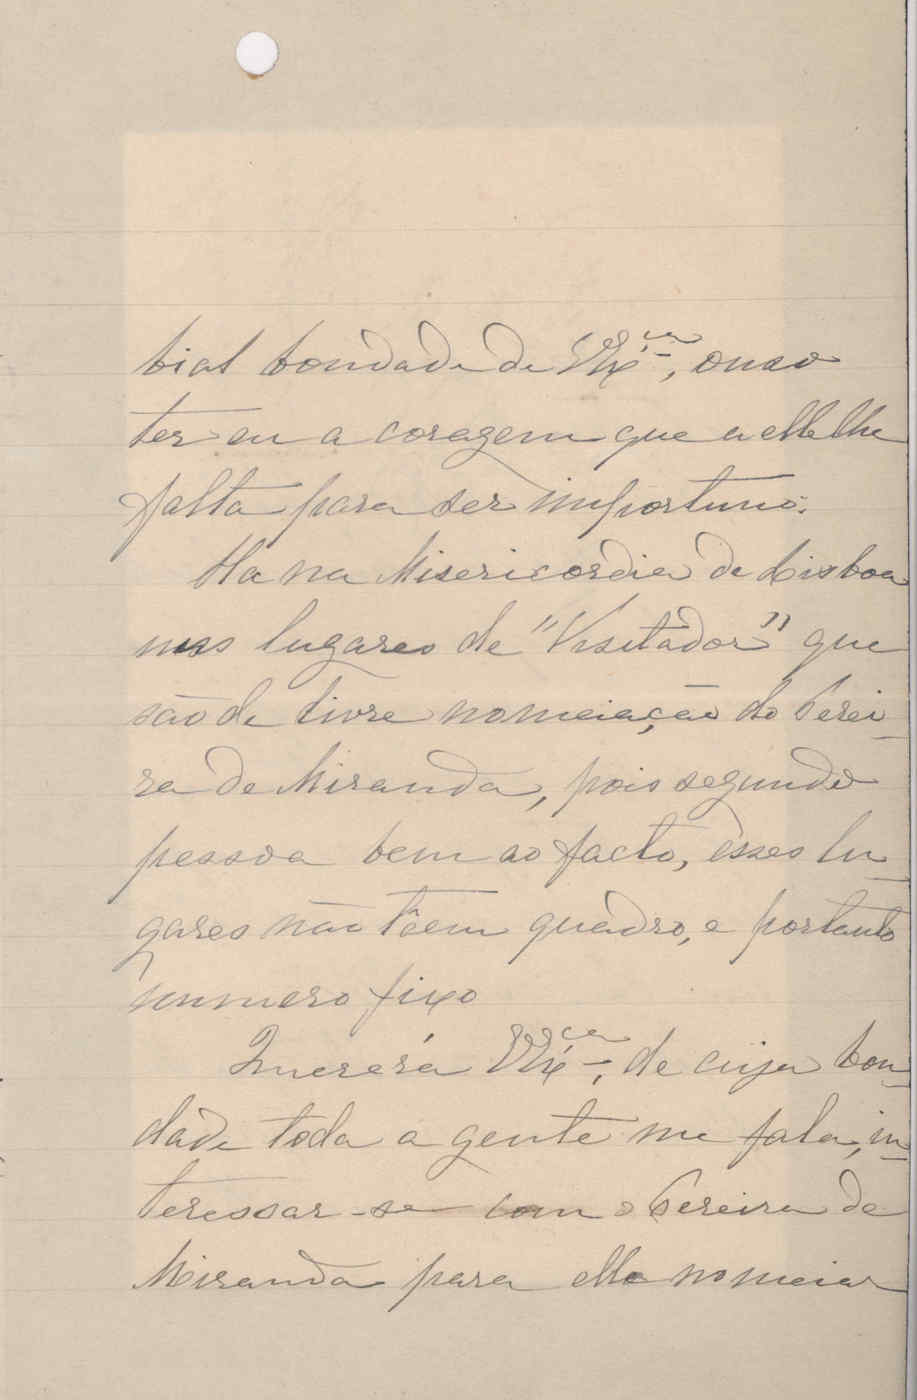 bial bondade de V. Ex.cia, ouso
ter eu a coragem que a elle lhe
falta para ser importuno.
Ha na Misericordia de Lisboa
uns lugares de "Visitador" que
são de livre nomeiação do Perei-
ra de Miranda, pois segundo
pessoa bem ao facto, esses lu-
gares não tõem quadro, e portanto
numero fixo
Quererá V. Ex.cia, de cuja bon-
dade toda a gente me fala, in-
teressar-se com o Pereira de
Miranda para elle nomeiar